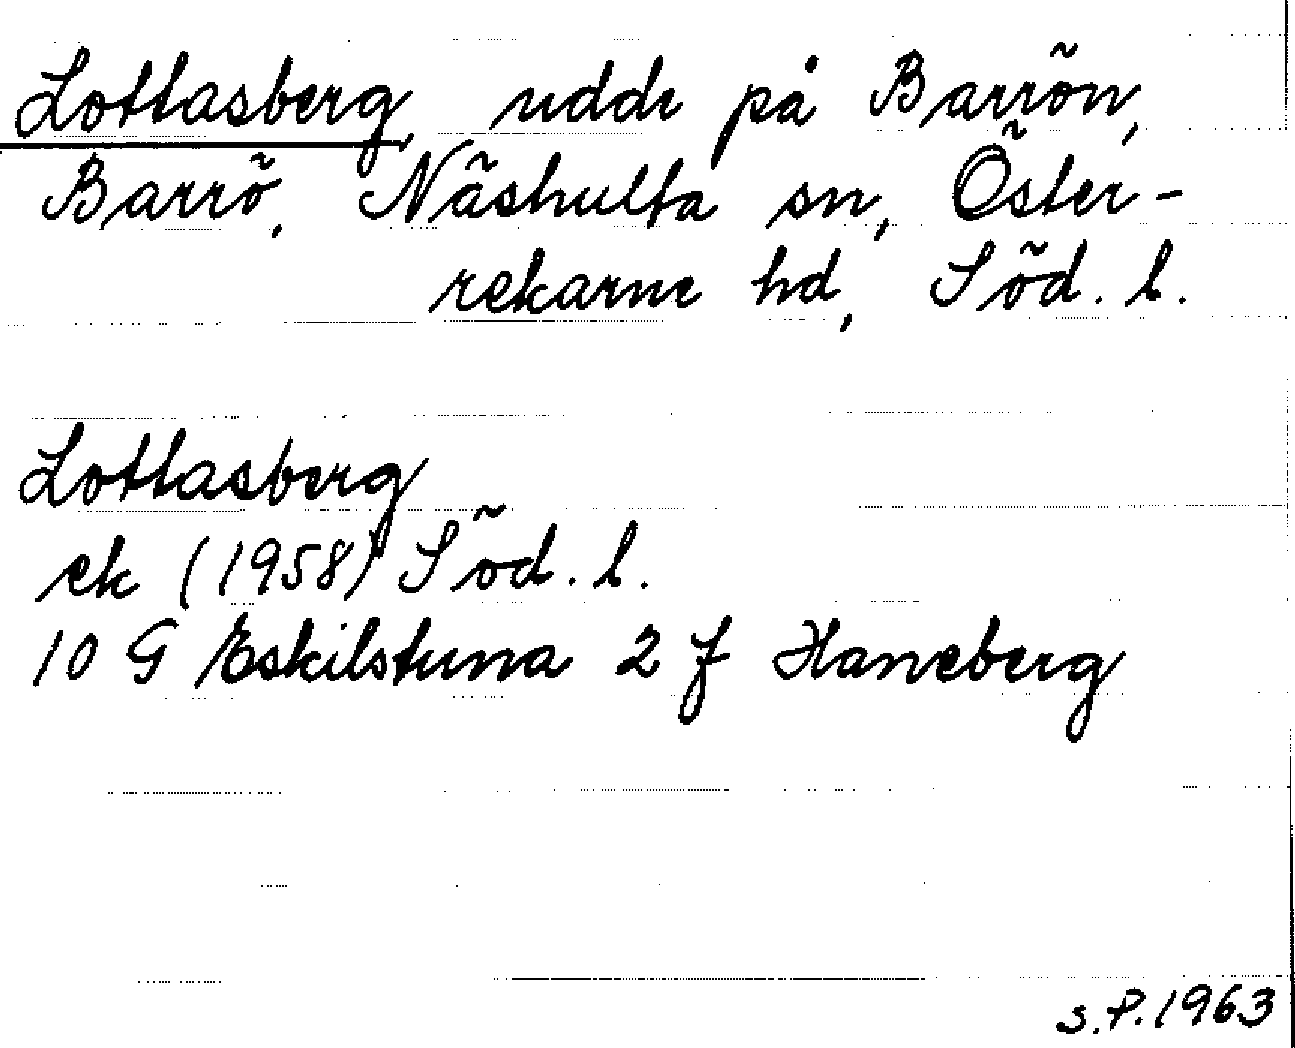 Lottasberg, udde på Barrön,
Barrö, Näshulta sn, Öster-
rekarne hd, Söd. l.
Lottasberg
ek (1958) Söd. l.
10 G Eskilstuna 2 f Haneberg
S.P.1963